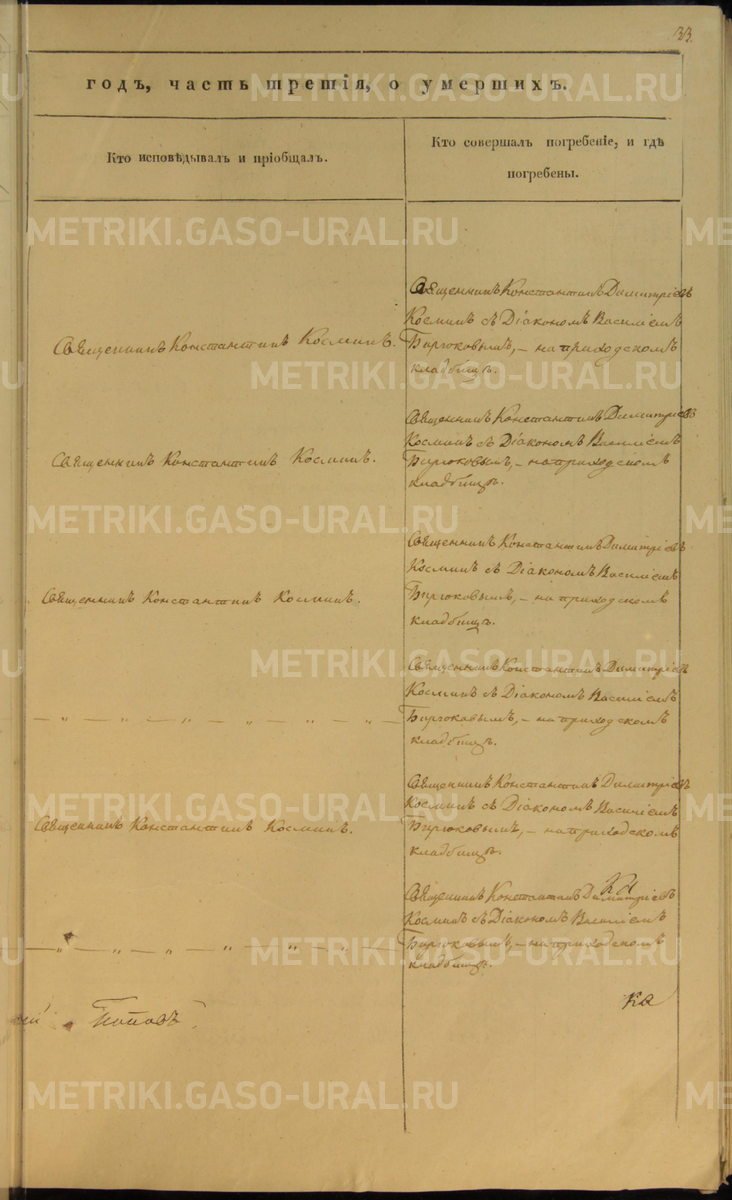 33.
годъ, часть третія, о умершихъ.
Кто исповѣдывалъ и пріобщалъ.
Кто совершалъ погребеніе, и гдѣ
погребены.
Священникъ Константинъ Космикъ.
Священникъ Константинъ Димитріевъ
Космикъ съ Діакономъ Василіемъ
Бирюковымъ, – на приходскомъ
кладбищѣ.
Священникъ Константинъ Космикъ.
Священникъ Константинъ Димитріевъ
Космикъ съ Діакономъ Василіемъ
Бирюковымъ, – на приходскомъ
кладбищѣ.
Священникъ Константинъ Космикъ.
Священникъ Константинъ Димитріевъ
Космикъ съ Діакономъ Василіемъ
Бирюковымъ, – на приходскомъ
кладбищѣ.
— „ — „ — „ — „ — „ — „ —
Священникъ Константинъ Димитріевъ
Космикъ съ Діакономъ Василіемъ
Бирюковымъ, – на приходскомъ
кладбищѣ.
Священникъ Константинъ Космикъ.
Священникъ Константинъ Димитріевъ
Космикъ съ Діакономъ Василіемъ
Бирюковымъ, – на приходскомъ
кладбищѣ.
— „ — „ — „ — „ — „ — „ —
Священникъ Константинъ Димитріевъ
Космикъ съ Діакономъ Василіемъ
Бирюковымъ, – на приходскомъ
кладбищѣ.
Поповъ
ка
METRIKI.GASO-URAL.RU